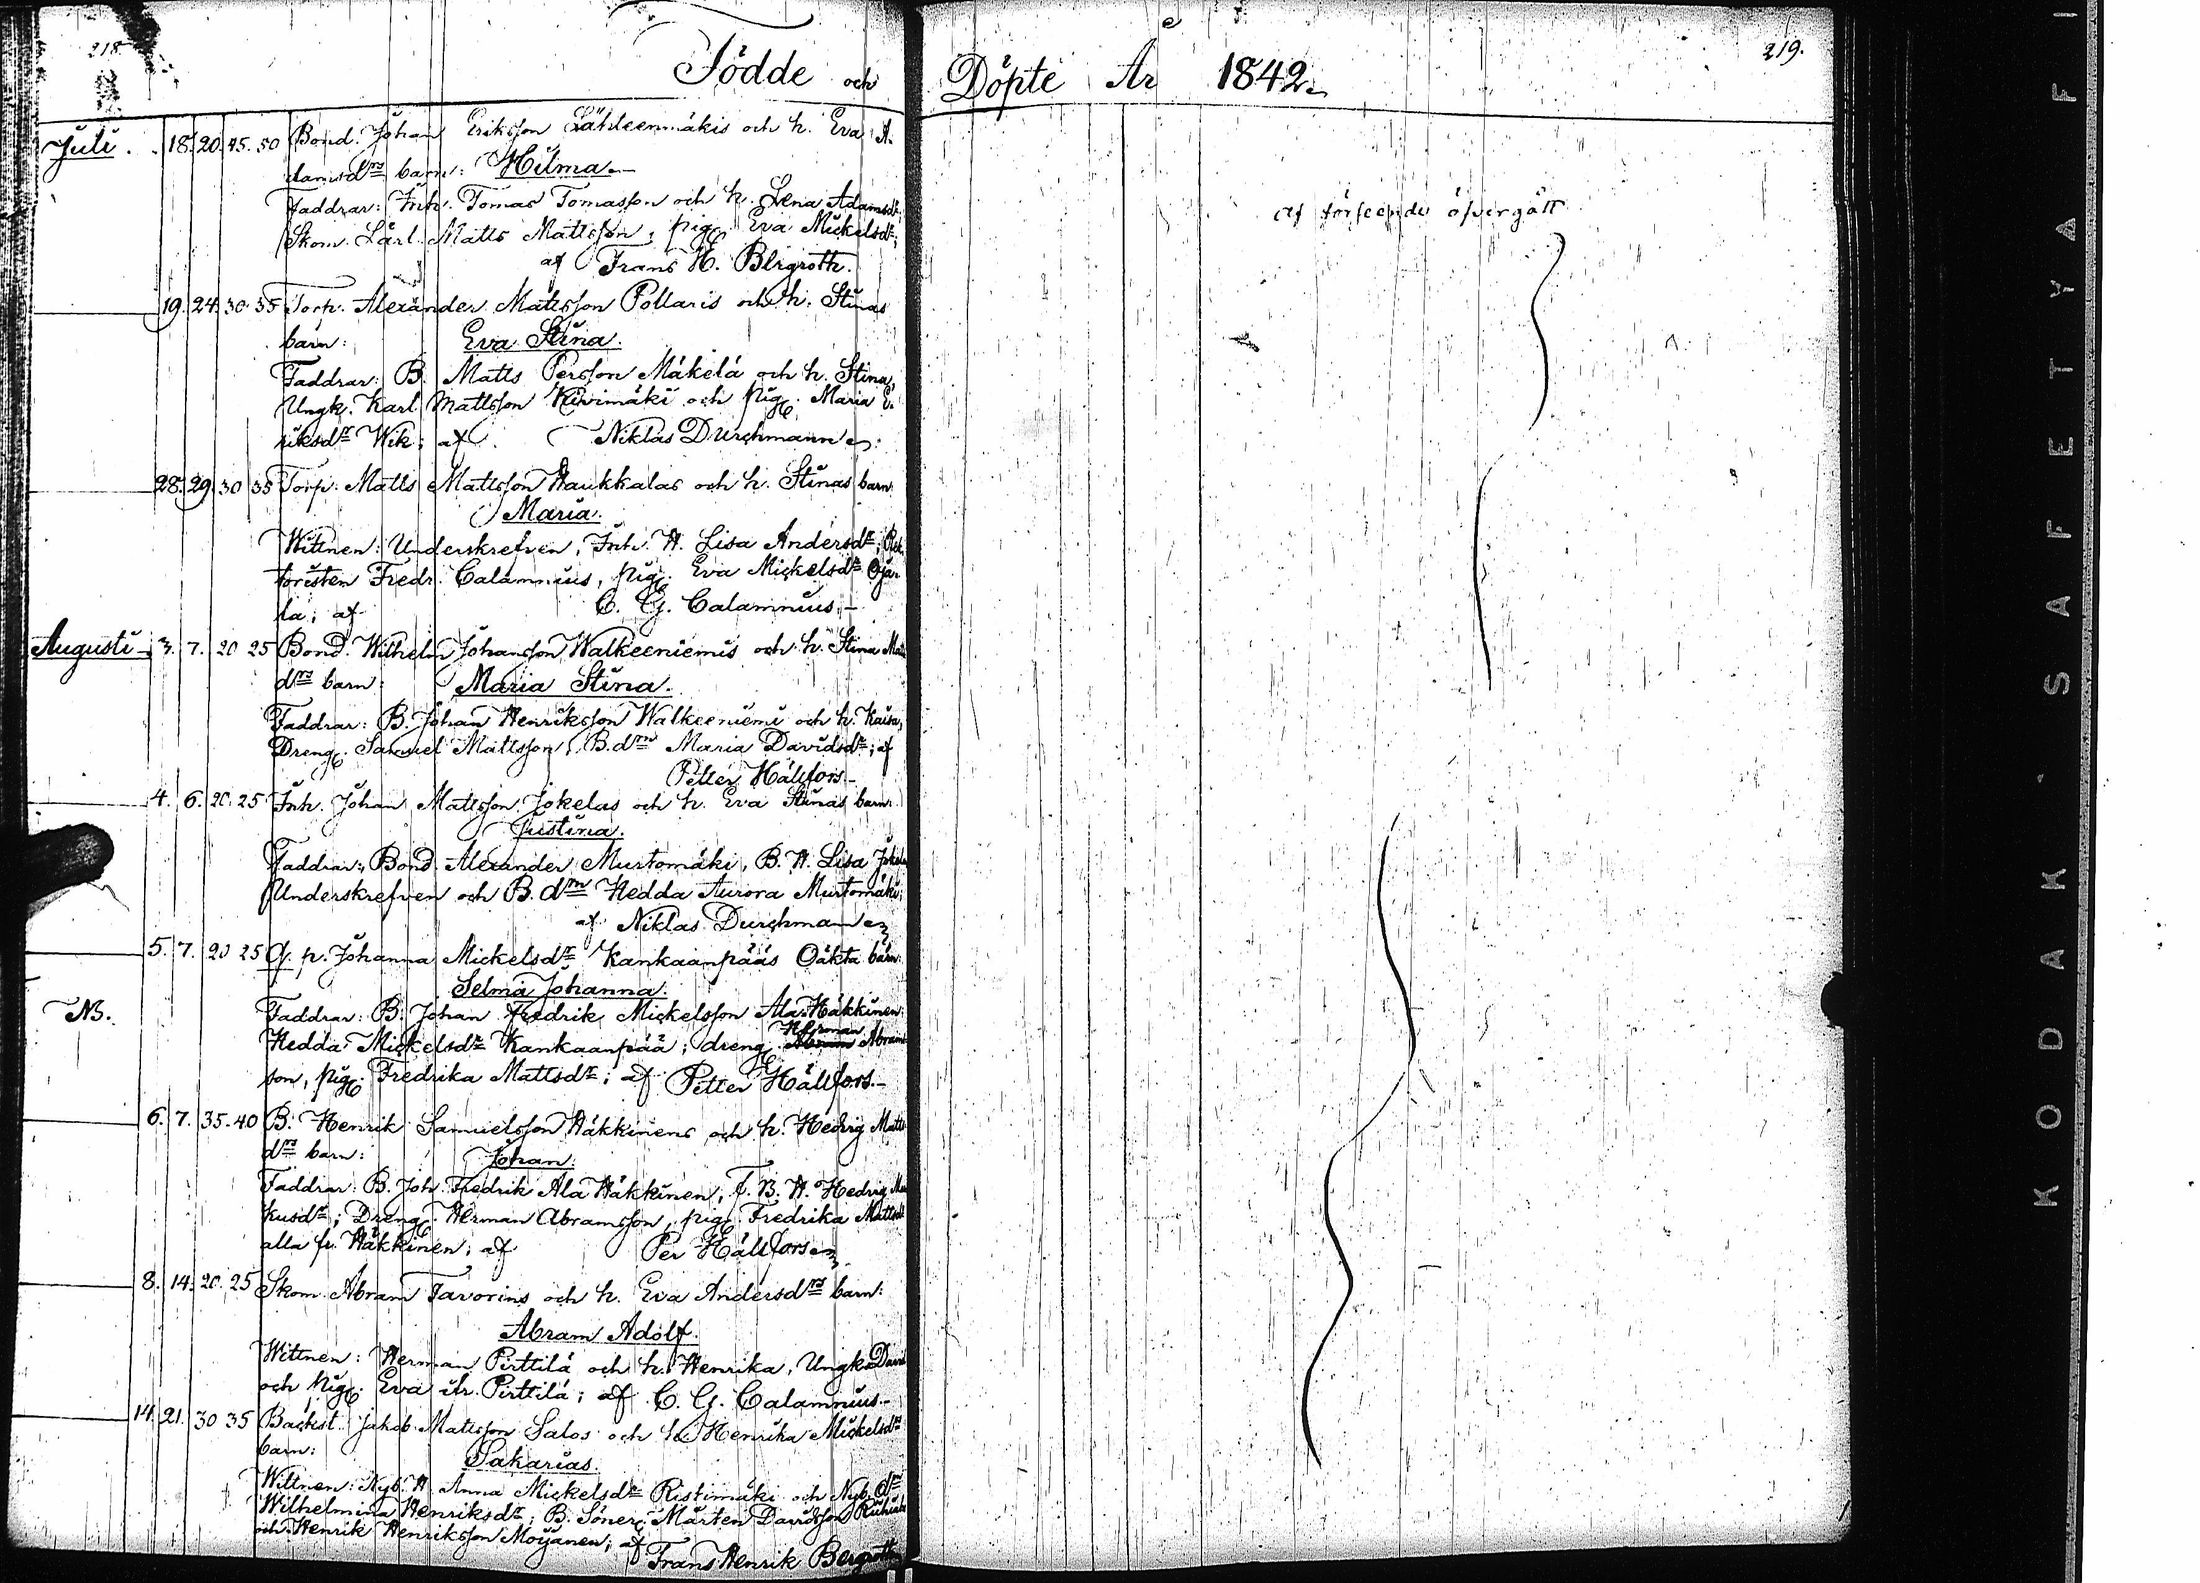 218.
Födde och
Juli. 18. 20. 45. 50 Bond. Johan Eriksson Lähteenmäkis och h. Eva A-
damsdrs barn: Hilma.
Faddrar: Inh. Tomas Tomasson och h. Lena Adamsdr,
Skom. Lärl. Matts Mattsson, pig. Eva Mickelsdr;
af Frans H. Bergroth.
19. 24. 30. 35 Torp. Alexander Mattsson Pollaris och h. Stinas
barn: Eva Stina.
Faddrar: B. Matts Persson Mäkelä och h. Stina,
Ungk. Karl Mattsson Kivimäki och pig. Maria E-
riksdr Wik; af Niklas Durchman
28. 29. 30 35 Torp. Matts Mattsson Haukkalas och h. Stinas barn:
Maria.
Wittnen: Underskrefven, Inh. H. Lisa Andersdr;
toristen Fredr. Calamnius, pig. Eva Mickelsdr Oja-
la; af C. G. Calamnius.
Augusti 3. 7. 20 25 Bond. Wilhelm Johansson Walkeeniemis och h. Stina Matts
drs barn: Maria Stina.
Faddrar: B. Johan Henriksson Walkeeniemi och h. Kaisa,
Dreng. Samuel Mattsson, B. drn Maria Davidsdr; af
Petter Hällfors.
4. 6. 20. 25 Inh. Johan Mattsson Jokelas och h. Eva Stinas barn:
Justina.
Faddrar: Bond. Alexander Murtomäki, B. H. Lisa Jokela
Underskrefven och B. drn Hedda Aurora Murtomäki;
af Niklas Durchman
5. 7. 20 25 Q. p. Johanna Mickelsdr Kankaanpääs Oäkta barn:
Selma Johanna.
NB. Faddrar: B. Johan Fredrik Mickelsson Ala-Häkkinen
Herman
Hedda Mickelsdr Kankaanpää; dreng. Abrams
son, pig. Fredrika Mattsdr; af Petter Hällfors.
6. 7. 35. 40 B. Henrik Samuelsson Häkkinens och h. Hedvig Matts
drs barn: Johan.
Faddrar: B. Joh. Fredrik Ala Häkkinen, F. B. H. Hedvig Mar
kusdr; Dreng. Herman Abramsson, pig. Fredrika Mattsdr
alla fr. Häkkinen; af Per Hällfors
8. 14. 20. 25 Skom. Abram Favorins och h. Eva Andersdrs barn:
Abram Adolf.
Wittnen: Herman Pirttilä och h. Henrika, Ungk. David
och pig. Eva ifr. Pirttilä; af C. G. Calamnius.
14. 21. 30 35 Backst. Jakob Mattsson Salos och h. Henrika Mickelsdrs
barn: Sakarias.
Wittnen: Nyb. H. Anna Mickelsdr Ristimäki och Nyb. dr
Wilhelmina Henriksdr; B. Söner: Mårten Davidsson
och Henrik Henriksson Moijanen; af
Frans Henrik Bergroth
219.
Döpte År 1842.
af förseende öfvergått
KODAK · SAFETY A FI